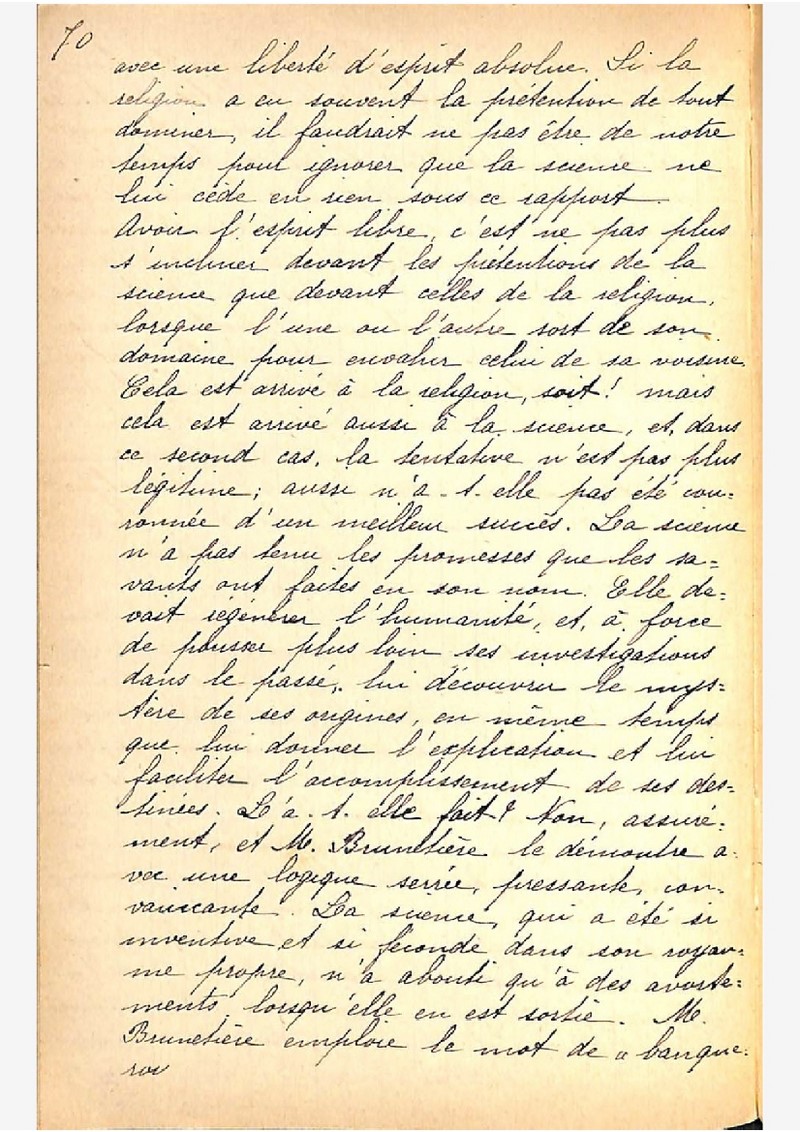 70
avec une liberté d'esprit absolue. Si la
religion a eu souvent la prétention de tout
dominer, il faudrait ne pas être de notre
temps pour ignorer que la science ne
lui cède en rien sous ce rapport.
Avoir l'esprit libre, c'est ne pas plus
s'incliner devant les prétentions de la
science que devant celles de la religion,
lorsque l'une ou l'autre sort de son
domaine pour envahir celui de sa voisine.
Cela est arrivé à la religion, soit! mais
cela est arrivé aussi à la science, et, dans
ce second cas, la tentative n'est pas plus
légitime; aussi n'a-t-elle pas été cou=
ronnée d'un meilleur succès. La science
n'a pas tenu les promesses que les sa=
vants ont faites en son nom. Elle de=
vait régénérer l'humanité, et, à force
de pousser plus loin ses investigations
dans le passé, lui découvrir le mys=
tère de ses origines, en même temps
que lui donner l'explication et lui
faciliter l'accomplissement de ses des=
tinées. L'a-t-elle fait? Non, assuré=
ment, et M. Brunetière le démontre a=
vec une logique serrée, pressante, con=
vaincante. La science, qui a été si
inventive et si féconde dans son royau=
me propre, n'a abouti qu'à des avorte=
ments lorsqu'elle en est sortie. M.
Brunetière emploie le mot de « banque=
rou